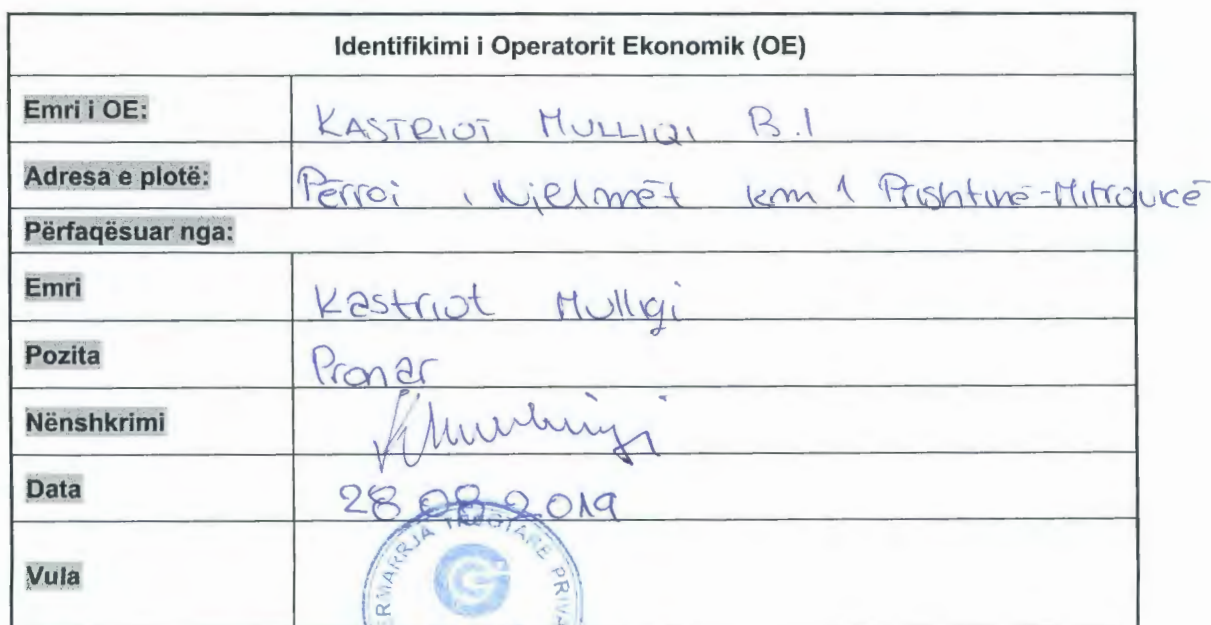 Identifikimi i Operatorit Ekonomik (OE)
Emri i OE: KASTRIOT MULLIQI B.I
Adresa e plotë: Përroi i Njelmët km 1 Prishtinë-Mitrovicë
Përfaqësuar nga:
Emri Kastriot Mulliqi
Pozita Pronar
Nënshkrimi
Data 28.08.2019
Vula
ERMARRJA TREGTARE PRIVA